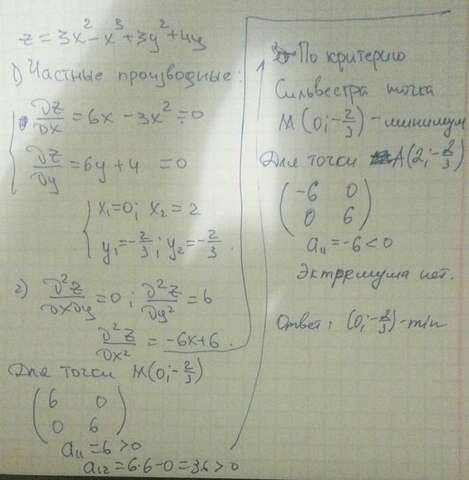 z = 3x² - x³ + 3y² + 4y
1) Частные производные:
∂z/∂x = 6x - 3x² = 0
∂z/∂y = 6y + 4 = 0
x₁ = 0; x₂ = 2
y₁ = -2/3; y₂ = -2/3.
2) ∂²z/∂x∂y = 0; ∂²z/∂y² = 6
∂²z/∂x² = -6x + 6.
Для точки M(0; -2/3)
(6 0
0 6)
a₁₁ = 6 > 0
a₁₂ = 6·6 - 0 = 36 > 0
По критерию
Сильвестра точка
M(0; -2/3) - минимум
Для точки A(2; -2/3)
(-6 0
0 6)
a₁₁ = -6 < 0
Эктремума нет.
Ответ: (0; -2/3) - min